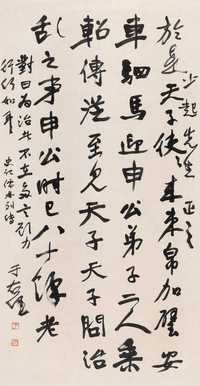 少起先生正之
於是天子使使束帛加璧安
車駟馬迎申公弟子二人乘
軺傳從至見天子天子問治
亂之事申公時已八十餘老
對曰為治者不在多言顧力
行何如耳
史記儒林列傳
于右任